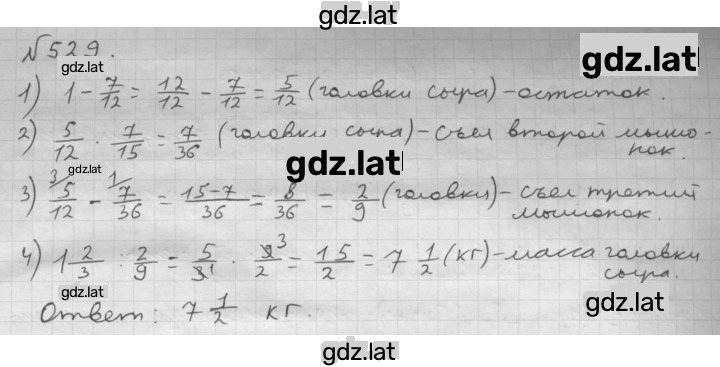 gdz.lat
№529.
gdz.lat
gdz.lat
1) 1 - 7/12 = 12/12 - 7/12 = 5/12 (головки сыра) - остаток.
2) 5/12 · 7/15 = 7/36 (головки сыра) - съел второй мышо-
нок.
gdz.lat
gdz.lat
3) 3/ 5/12 - 1/ 7/36 = 15-7/36 = 8/36 = 2/9 (головки) - съел третий
мышонок.
4) 1 2/3 : 2/9 = 5/3 1 · 9 3/2 = 15/2 = 7 1/2 (кг) - масса головки
сыра.
gdz.lat
gdz.lat
Ответ: 7 1/2 кг.
gdz.lat